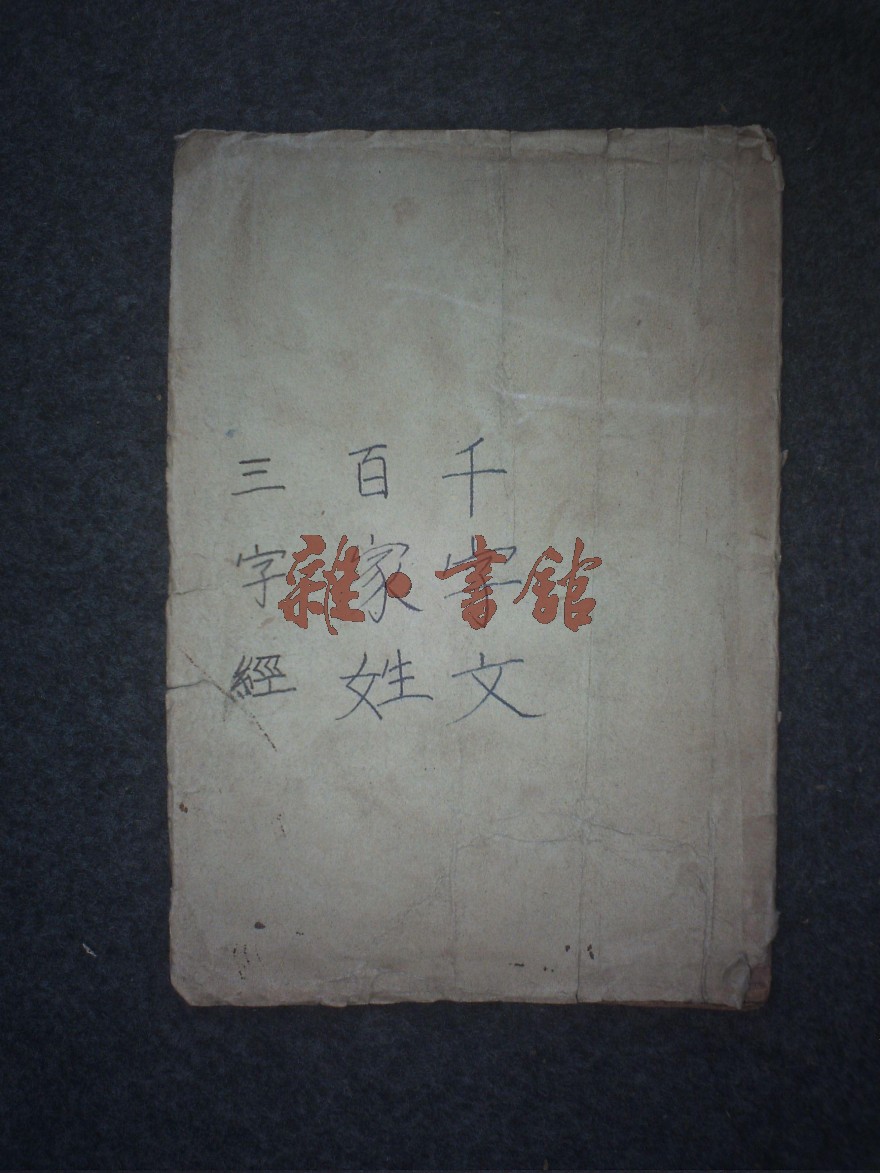 千字文
百家姓
三字經
雜·書館